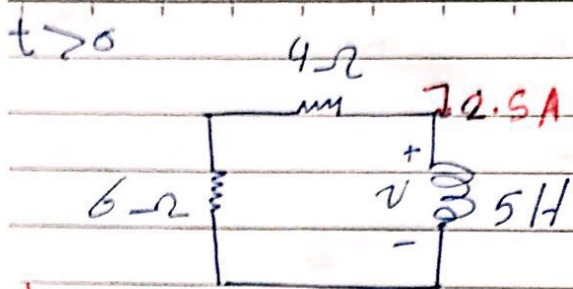 t>0
4Ω
2.5A
+
6Ω
v
5H
-